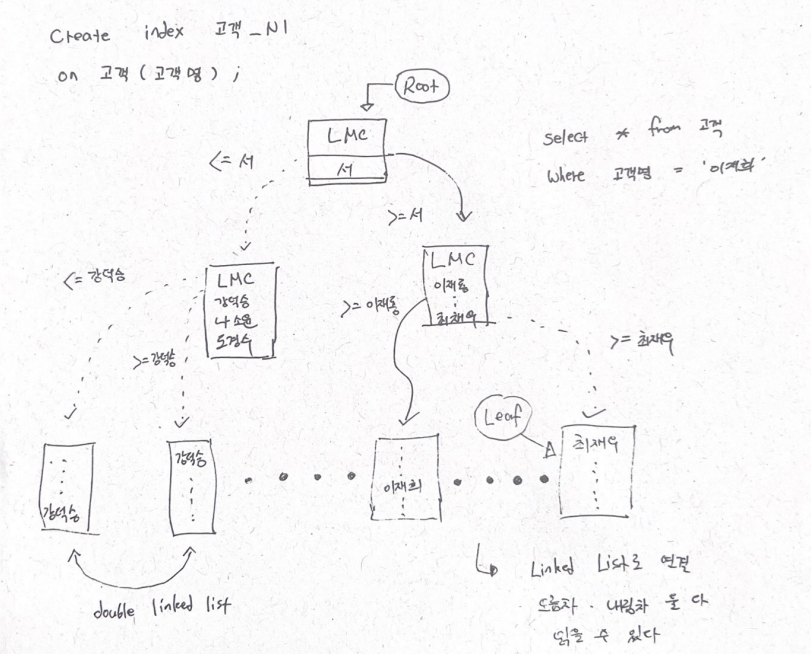 Create index 고객_N1
on 고객(고객명);
Root
LMC
서
<= 서
>= 서
select * from 고객
where 고객명 = '이재희'
<= 강덕승
LMC
강덕승
나소원
도경수
>= 강덕승
LMC
이재룡
최채우
>= 이재룡
>= 최채우
Leaf
강덕승
강덕승
이재희
최채우
double linked list
Linked List로 연결
오름차 · 내림차 둘 다
읽을 수 있다